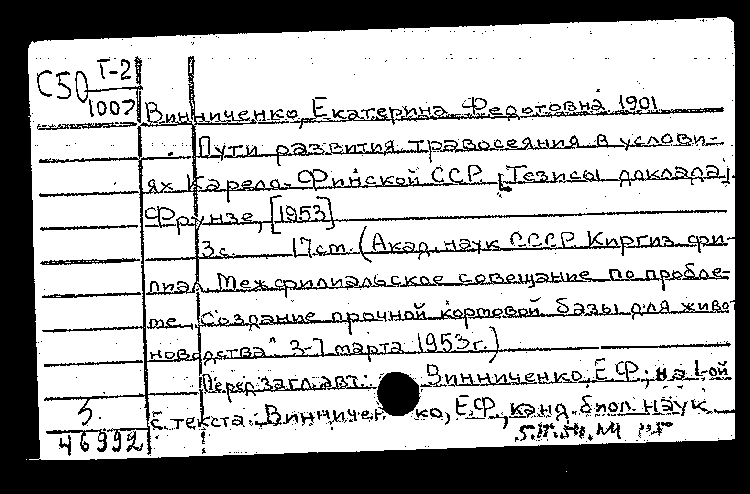 С50 Т-2
1007
Винниченко, Екатерина Федотовна 1901
Пути развития травосеяния в услови-
ях Карело-Финской ССР [Тезисы доклада].
Фрунзе, [1953]
3 с. 17 см. (Акад. наук СССР Киргиз. фи-
лиал. Межфилиальское совещание по пробле-
ме „Создание прочной кормовой базы для живот
новодства" 3-7 марта 1953 г.)
Перед загл. авт: Винниченко, Е.Ф; на 1-ой
с. текста: Винниченко, Е.Ф, канд. биол. наук
46992